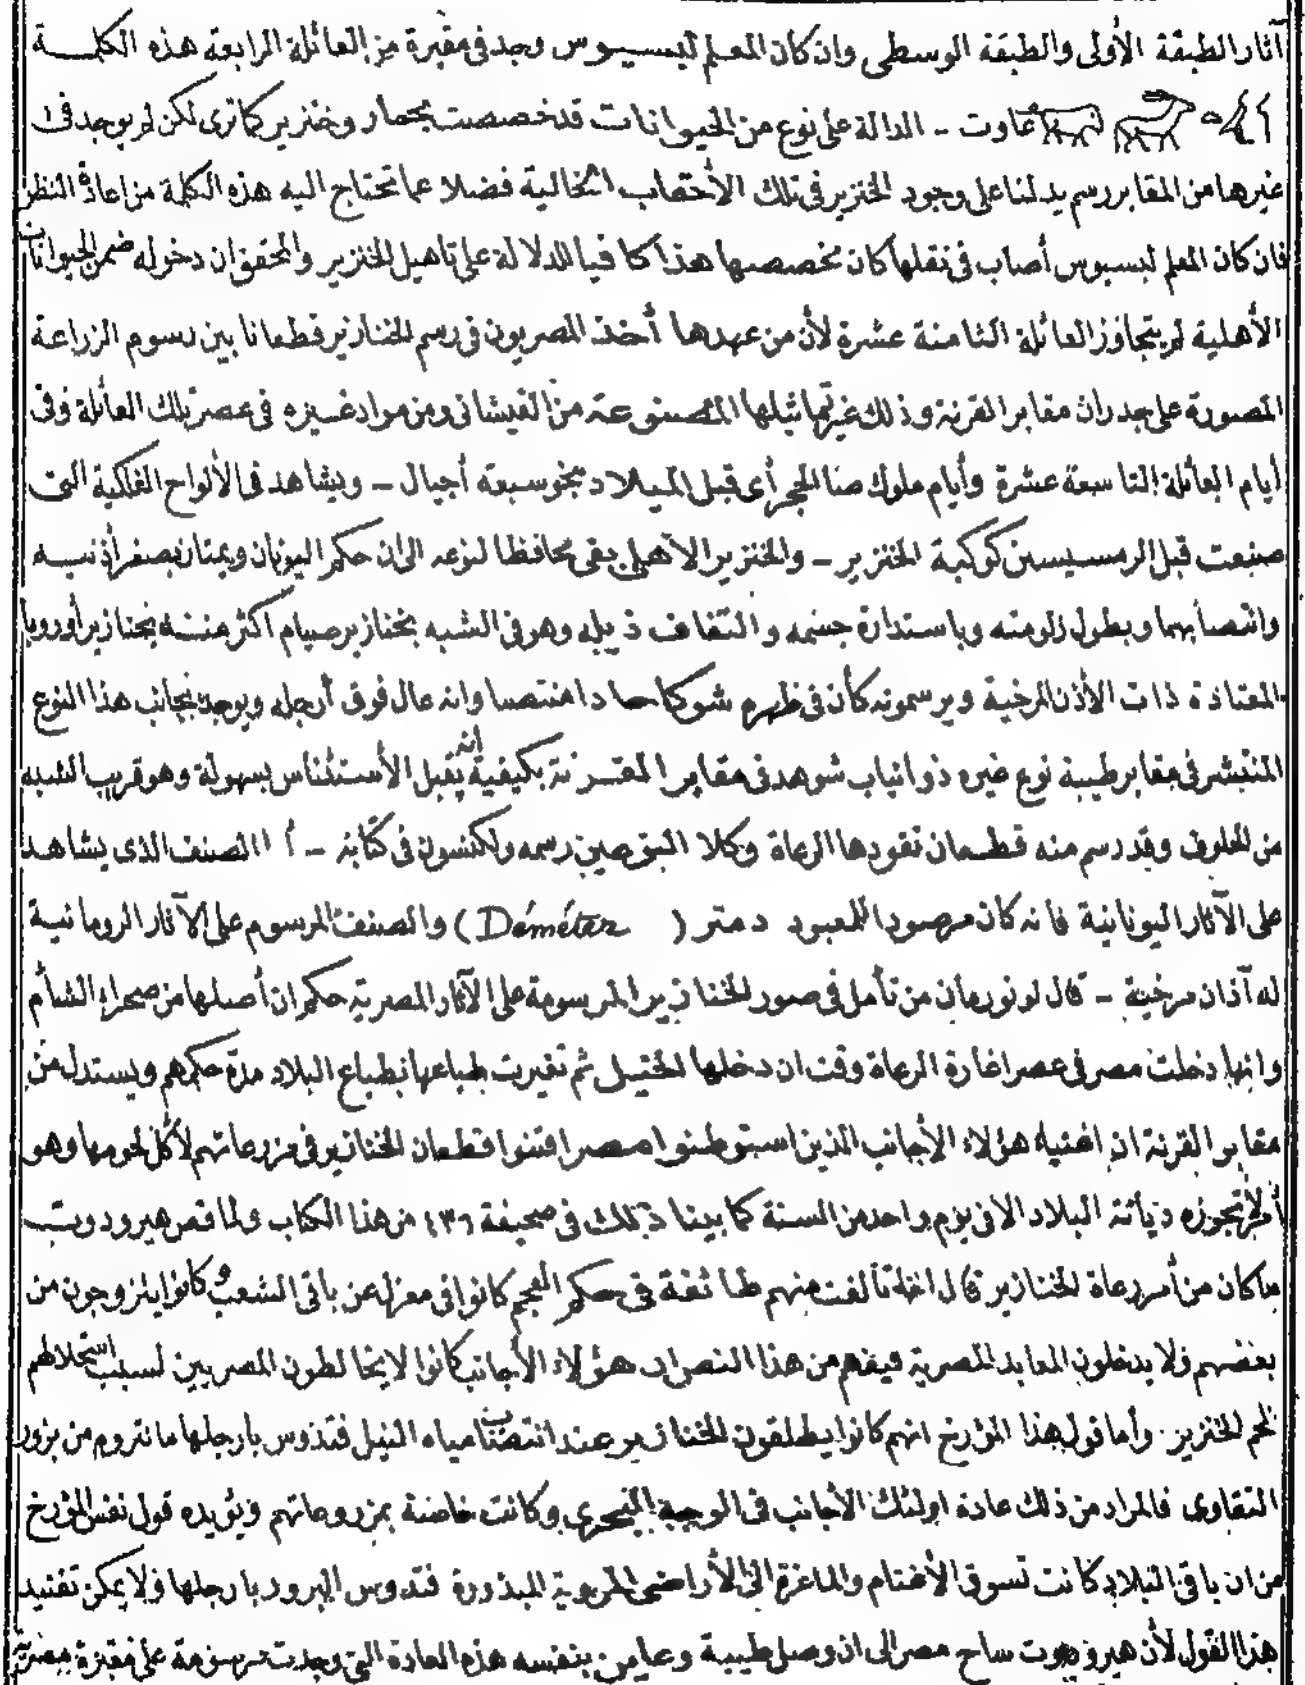 آثار الطبقة الأولى والطبقة الوسطى وان كان المعلم ليبسيوس وجد فى مقبرة من العائلة الرابعة هذه الكلمة
عاوت - الدالة على نوع من الحيوانات قد خصصت بحمار وخنزير كما ترى لكن لم يوجد فى
غيرها من المقابر رسم يدلنا على وجود الخنزير فى تلك الأحقاب الخالية فضلا عما تحتاج اليه هذه الكلمة من اعادة النظر
فان كان المعلم لبسيوس أصاب فى نقلها كان مخصصها هذا كافيا للدلالة على تاهيل الخنزير والمحقق ان دخوله ضمن الحيوانات
الأهلية لم يتجاوز العائلة الثامنة عشرة لأن من عهدها أخذ المصريون فى رسم الخنازير قطعانا بين رسوم الزراعة
المصورة على جدران مقابر القرنة وذلك غير تماثيلها المصنوعة من القيشانى ومن مواد غيره فى عصر تلك العائلة وفى
أيام العائلة التاسعة عشرة وأيام ملوك صا الحجر أى قبل الميلاد بنحو سبعة أجيال - ويشاهد فى الألواح الفلكية التى
صنعت قبل الرمسيسين كوكبة الخنزير - والخنزير الأهلى بقى محافظا لنوعه الى ان حكم اليونان ويمتاز بصغر أذنيه
وانتصابهما وبطول زلومته وباستدارة جسمه والتفاف ذيله وهو فى الشبه بخنازير صيام اكثر منه بخنازير أوروبا
المعتادة ذات الأذن المرخية ويرسمونه كأن فى ظهره شوكا حادا منتصبا وانه عال فوق أرجله ويوجد بجانب هذا النوع
المنتشر فى مقابر طيبة نوع غيره ذو انياب شوهد فى مقابر القرنة بكيفية انه يقبل الأستئناس بسهولة وهو قريب الشبه
من الحلوف وقد رسم منه قطعان تقودها الرعاة وكلا النوعين رسمه ولكنسون فى كتابه - أما الصنف الذى يشاهد
على الآثار اليونانية فانه كان مرصودا للمعبود دمتر ( Déméter ) والصنف المرسوم على الآثار الرومانية
له آذان مرخية - قال لونورمان من تأمل فى صور الخنازير المرسومة على الآثار المصرية حكم ان أصلها من صحراء الشأم
وانها دخلت مصر فى عصر اغارة الرعاة وقت ان دخلها الخيل ثم تغيرت طباعها بطباع البلاد مدة حكمهم ويستدل من
مقابر القرنة ان اغنياء هؤلاء الأجانب الذين استوطنوا مصر اقتنوا قطعان الخنازير فى مزروعاتهم لأكل لحومها وهو
أمر لم تجوزه ديانة البلاد الا فى يوم واحد من السنة كما بينا ذلك فى صحيفة ٤٣٦ من هذا الكتاب ولما قص هيرودوت
ما كان من أمر رعاة الخنازير قال انه تألفت منهم طائفة فى حكم العجم كانوا فى معزل عن باقى الشعب وكانوا يتزوجون من
بعضهم ولا يدخلون المعابد المصرية فيفهم من هذا النص ان هؤلاء الأجانب كانوا لا يخالطون المصريين لسبب استحلالهم
لحم الخنزير وأما قول هذا المؤرخ انهم كانوا يطلقون الخنازير عند انتضاب مياه النيل فتدوس بارجلها ما تروم من بزور
التقاوى فالمراد من ذلك عادة اولئك الأجانب فى الوجه البحرى وكانت خاصة بمزروعاتهم ويؤيده قول نفس المؤرخ
من ان باقى البلاد كانت تسوق الأغنام والماعزة الى الأراضى المروية المبذورة فتدوس البزور بارجلها ولا يمكن تفنيد
هذا القول لأن هيرودوت ساح مصر الى ان وصل طيبة وعاين بنفسه هذه العادة التى وجدت مرسومة على مقبرة مصرية